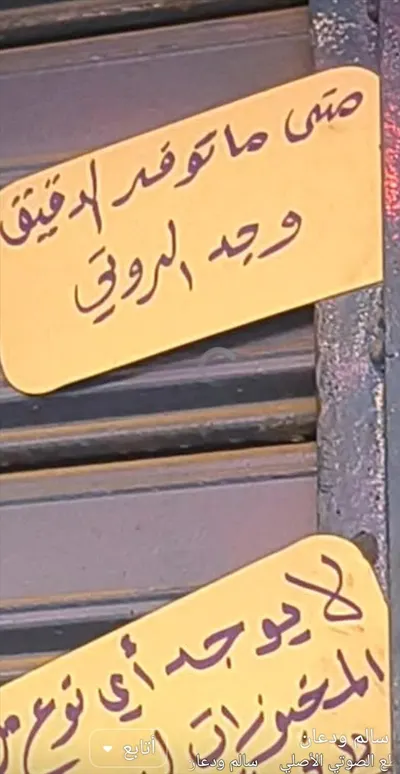 متى ما توفر الدقيق
وجد الروتي
لا يوجد أي نوع من
المخبوزات
سالم ودعان
أتابع
الصوتي الأصلي سالم ودعار